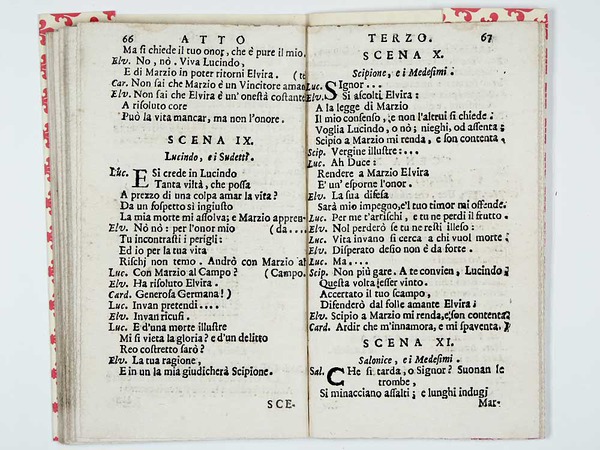 66 ATTO
Ma si chiede il tuo onor, che è pure il mio.
Elv. No, nò. Viva Lucindo,
E di Marzio in poter ritorni Elvira. (te
Car. Non sai che Marzio è un Vincitore aman
Elv. Non sai che Elvira è un' onestà costante
A risoluto core
Può la vita mancar, ma non l'onore.
SCENA IX.
Lucindo, e i Sudetti.
Luc. E Si crede in Lucindo
Tanta viltà, che possa
A prezzo di una colpa amar la vita?
Da un sospetto sì ingiusto
La mia morte mi assolva; e Marzio appren-
Elv. Nò nò: per l'onor mio (da....
Tu incontrasti i perigli:
Ed io per la tua vita
Rischj non temo. Andrò con Marzio al
Luc. Con Marzio al Campo? (Campo.
Elv. Ha risoluto Elvira.
Card. Generosa Germana!)
Luc. Invan pretendi....
Elv. Invan ricusi.
Luc. E d'una morte illustre
Mi si vieta la gloria? e d'un delitto
Reo costretto sarò?
Elv. La tua ragione,
E in un la mia giudicherà Scipione.
SCE-
TERZO. 67
SCENA X.
Scipione, e i Medesimi.
Luc. SIgnor...
Elv. Si ascolti Elvira:
A la legge di Marzio
Il mio consenso, e non l'altrui si chiede.
Voglia Lucindo, o nò; nieghi, od assenta;
Scipio a Marzio mi renda, e son contenta.
Scip. Vergine illustre:...
Luc. Ah Duce:
Rendere a Marzio Elvira
E' un' esporne l'onor.
Elv. La sua difesa
Sarà mio impegno, e'l tuo timor mi offende.
Luc. Per me t'arrischi, e tu ne perdi il frutto.
Elv. Nol perderò se tu ne resti illeso:
Luc. Vita invano si cerca a chi vuol morte;
Elv. Disperato desio non è da forte.
Luc. Ma....
Scip. Non più gare. A te convien, Lucindo,
Questa volta esser vinto.
Accertato il tuo scampo,
Difenderò dal folle amante Elvira.
Elv. Scipio a Marzio mi renda, e son contenta
Card. Ardir che m'innamora, e mi spaventa.)
SCENA XI.
Salonice, e i Medesimi.
Sal. CHe si tarda, o Signor? Suonan le
trombe,
Si minacciano assalti; e lunghi indugi
Mar-